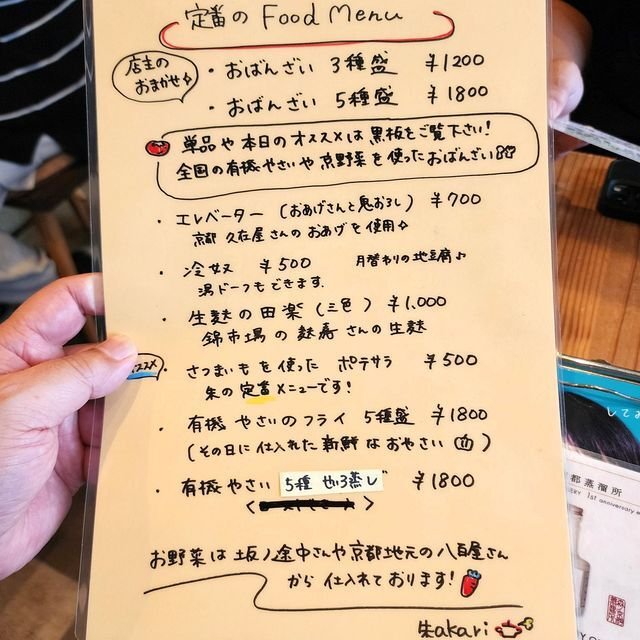 定番の Food Menu
店主の
おまかせ
・おばんざい 3種盛 ¥1200
・おばんざい 5種盛 ¥1800
単品や本日のオススメは黒板をご覧下さい!
全国の有機やさいや京野菜を使ったおばんざい
・エレベーター (おあげさんと鬼おろし) ¥700
京都 久在屋さんのおあげを使用
・冷奴 ¥500 月替わりの地豆腐♪
湯ドーフもできます
・生麩の田楽 (三色) ¥1,000
錦市場の麩寿さんの生麩
・さつまいもを使った ポテサラ ¥500
朱の定番メニューです!
・有機やさいのフライ 5種盛 ¥1800
(その日に仕入れた新鮮なおやさい)
・有機やさい 5種 せいろ蒸し ¥1800
お野菜は坂ノ途中さんや京都地元の八百屋さん
から仕入れております!
朱akari
都蒸溜所
1st anniversary